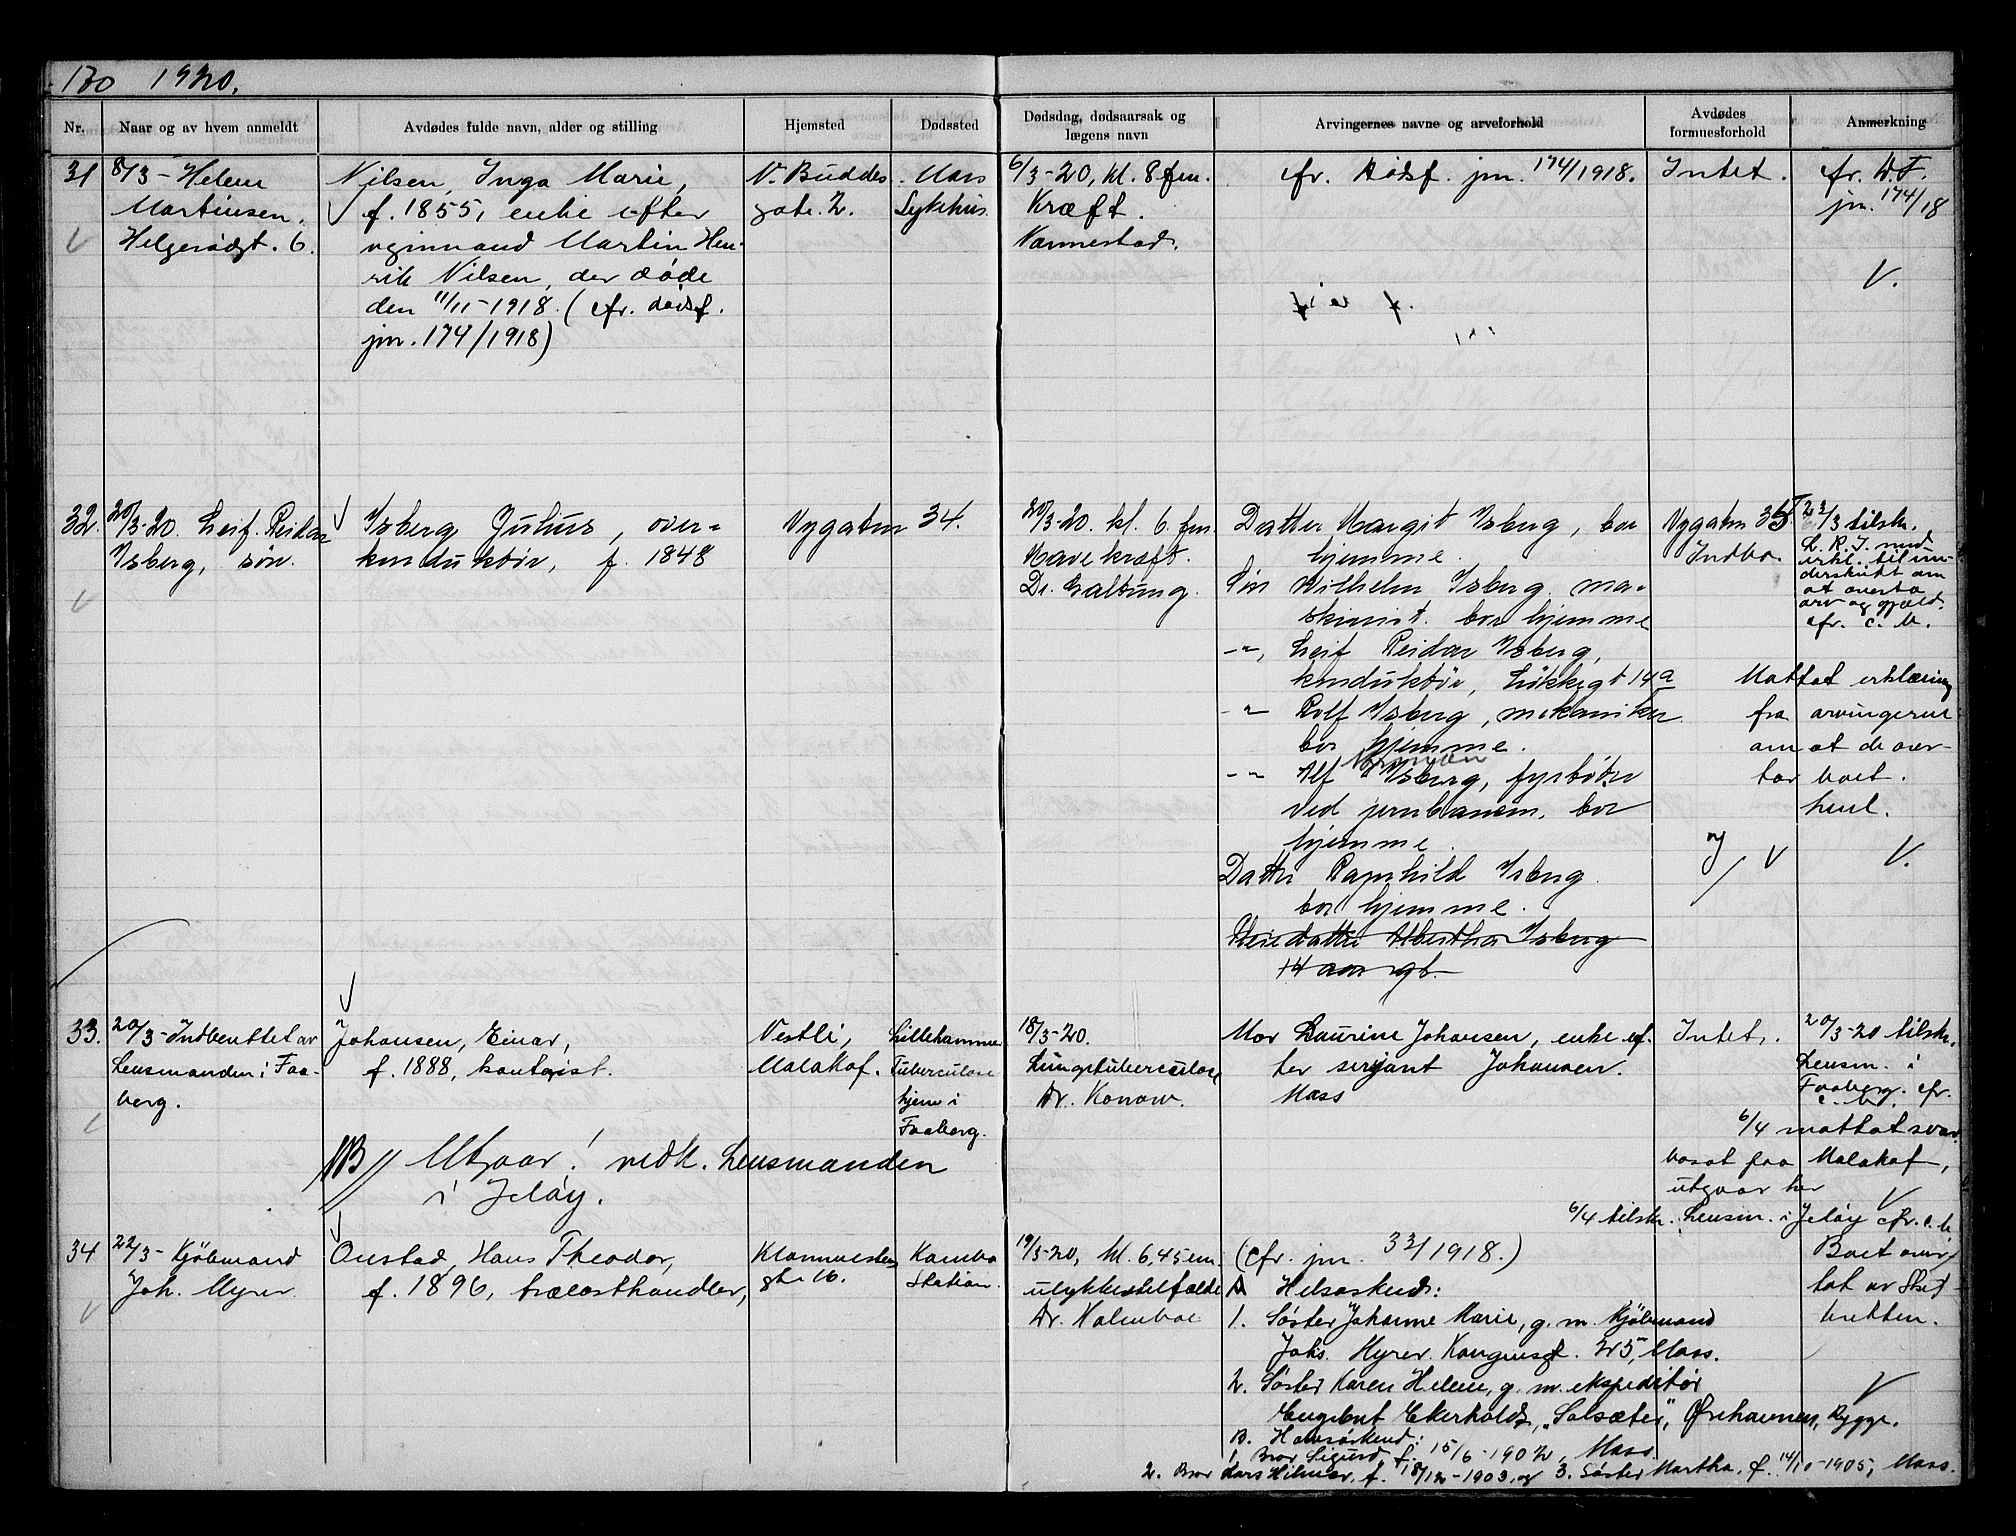 130 1920.
Nr.
Naar og av hvem anmeldt
Avdødes fulde navn, alder og stilling
Hjemsted
Dødssted
Dødsdag, dødsaarsak og
lægens navn
Arvingernes navne og arveforhold
Avdødes
formuesforhold
Anmerkning
31
8/3 - Helene
Martinsen.
Helgerødgt. 6.
Nilsen, Inga Marie,
f. 1855, enke efter
vognmand Martin Hen-
rik Nilsen, der døde
den 11/11-1918. (cfr. dødsf.
jnr. 174/1918)
V. Buddes
gate. 2.
Moss
Sykehus.
6/3-20, kl. 8 fm.
Kræft.
Vannestad.
cfr. Dødsf. jnr. 174/1918.
Intet.
cfr. D.F.
jnr. 174/18
32.
20/3-20. Leif Reidar
Isberg, søn.
Isberg Julius, over-
konduktør, f. 1848
Nygaten
34.
20/3-20. kl. 6. fm.
Mavekræft.
Dr. Galtung.
Datter Margit Isberg, bor
hjemme.
Søn Wilhelm Isberg, ma-
skinist. bor hjemme
-"- Leif Reidar Isberg,
konduktør, Løkkegt 14a
-"- Rolf Isberg, mekaniker
bor hjemme.
-"- Alf Isberg, fyrbøter
ved jernbanen, bor
hjemme.
Datter Ragnhild Isberg.
bor hjemme.
Pleiedatter Albertha Isberg
14 aar gl.
Nygaten 35
Indbo.
23/3 tilskr.
L. R. I. med
erkl. til un-
derskrift om
at overta
arv og gjæld.
cfr. c. b.
Mottat erklæring
fra arvingerne
om at de over-
tar boet.
henl.
33.
20/3 - Indberettet av
Lensmanden i Faa-
berg.
Johansen, Einar,
f. 1888, kontorist.
Vestli,
Malakof.
Lillehammer
Tuberculose
hjem i
Faaberg.
18/3-20.
Lungetuberculose
Dr. Konow.
Mor Laurine Johansen, enke ef-
ter serjant Johansen.
Moss
Intet.
20/3-20 tilskr.
Lensm. i
Faaberg. cfr.
c. b.
6/4 mottat svar.
bosat paa Malakof,
utgaar her
6/4 tilskr. Lensm. i Jeløy cfr. c. b.
NB // Utgaar! vedk. Lensmanden
i Jeløy.
34
22/3 - Kjøbmand
Joh. Myrer.
Onstad, Hans Theodor,
f. 1896, trælasthandler,
gt. 16.
Kambo
Station.
19/3-20, kl. 6,45 em.
ulykkestilfælde
Dr. Holmboe
(cfr. jnr. 33/1918.)
A Helsøskend:
1. Søster Johanne Marie, g. m. Kjøbmand
Johs. Myrer. Kongensgt. 25, Moss.
2. Søster Karen Helene, g. m. ekspeditør
Engebret Ekerholdt, "Solsæter", Ørehavnen, Rygge.
B. Halvsøskend:
1 Bror Sigurd, f. 15/6-1902, Moss.
2. Bror Lars Hilmar, f. 18/12-1903, og 3. Søster Martha, f. 14/10-1905, Moss.
Boet over-
tat av Skif-
teretten.